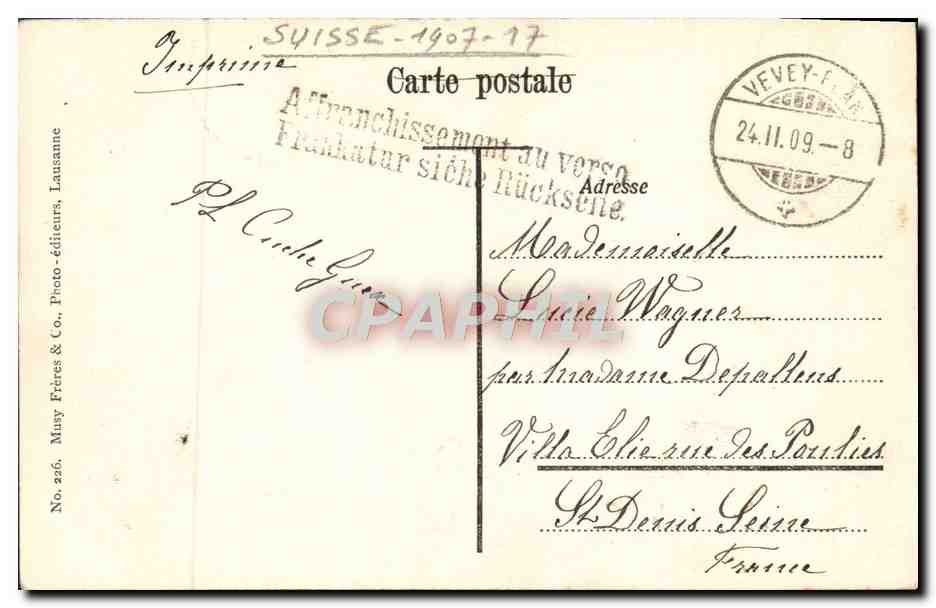 SUISSE - 1907-17
Imprimé
Carte postale
Affranchissement au verso
Frankatur siehe Rückseite.
VEVEY-PLAN
24.II.09.-8
Adresse
Mademoiselle
Lucie Wagner
par madame Depallens
Villa Elie rue des Poulies
St Denis Seine
France
No. 226. Musy Frères & Co., Photo-éditeurs, Lausanne
CPAPHIL